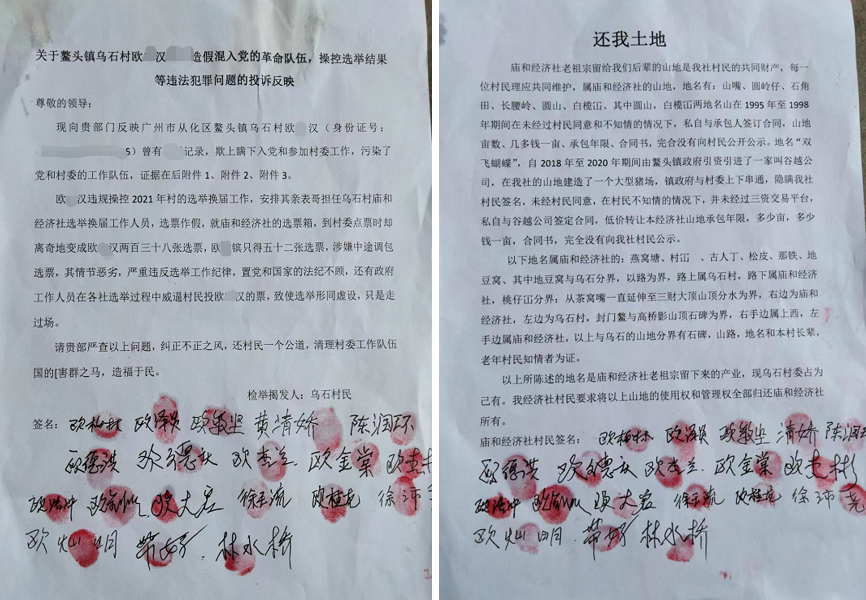 关于鳌头镇乌石村欧 汉 造假混入党的革命队伍，操控选举结果
等违法犯罪问题的投诉反映
尊敬的领导：
现向贵部门反映广州市从化区鳌头镇乌石村欧 汉（身份证号：
5）曾有 记录，欺上瞒下入党和参加村委工作，污染了
党和村委的工作队伍，证据在后附件 1、附件 2、附件 3。
欧 汉违规操控 2021 年村的选举换届工作，安排其亲表哥担任乌石村庙和
经济社选举换届工作人员，选票作假，就庙和经济社的选票箱，到村委点票时却
离奇地变成欧 汉两百三十八张选票，欧 镔只得五十二张选票，涉嫌中途调包
选票，其情节恶劣，严重违反选举工作纪律，置党和国家的法纪不顾，还有政府
工作人员在各社选举过程中威逼村民投欧 汉的票，致使选举形同虚设，只是走
过场。
请贵部严查以上问题，纠正不正之风，还村民一个公道，清理村委工作队伍
国的[害群之马，造福于民。
检举揭发人：乌石村民
签名： 欧敏坚 黄清娇 陈润环
欧德洪 欧金棠
欧大宏 欧桂龙
欧灿 四月 带好 林水桥
还我土地
庙和经济社老祖宗留给我们后辈的山地是我社村民的共同财产，每一
位村民理应共同维护，属庙和经济社的山地，地名有：山嘴、圆岭仔、石角
田、长腰岭、圆山、白榄㘭、其中圆山，白榄㘭两地名山在 1995 年至 1998
年期间在未经过村民同意和不知情的情况下，私自与承包人签订合同，山地
亩数、几多钱一亩、承包年限、合同书，完合没有向村民公开公示。地名“双
飞蝴蝶”，自 2018 年至 2020 年期间由鳌头镇政府引资引进了一家叫谷越公
司，在我社的山地建造了一个大型猪场，镇政府与村委上下串通，隐瞒我社
村民签名，未经村民同意，在村民不知情的情况下，并未经过三资交易平台，
私自与谷越公司签定合同，低价转让本经济社山地承包年限，多少亩，多少
钱一亩，合同书，完全没有向我社村民公示。
以下地名属庙和经济社的：燕窝塘、村㘭 、古人丁、松皮、那铁、地
豆窝、其中地豆窝与乌石分界，以路为界，路上属乌石村，路下属庙和经济
社，桃仔㘭分界；从茶窝嘴一直延伸至三财大顶山顶分水为界，右边为庙和
经济社，左边为乌石村，封门鳌与高桥影山顶石碑为界，右手边属上西，左
手边属庙和经济社，以上与乌石的山地分界有石碑，山路，地名和本村长辈，
老年村民知情者为证。
以上所陈述的地名是庙和经济社老祖宗留下来的产业，现乌石村委占为
己有。我经济社村民要求将以上山地的使用权和管理权全部归还庙和经济社
所有。
庙和经济社村民签名： 欧敏坚 清娇 陈润环
欧德洪 欧金棠
欧大宏 欧桂龙
欧灿 四月 带好 林水桥